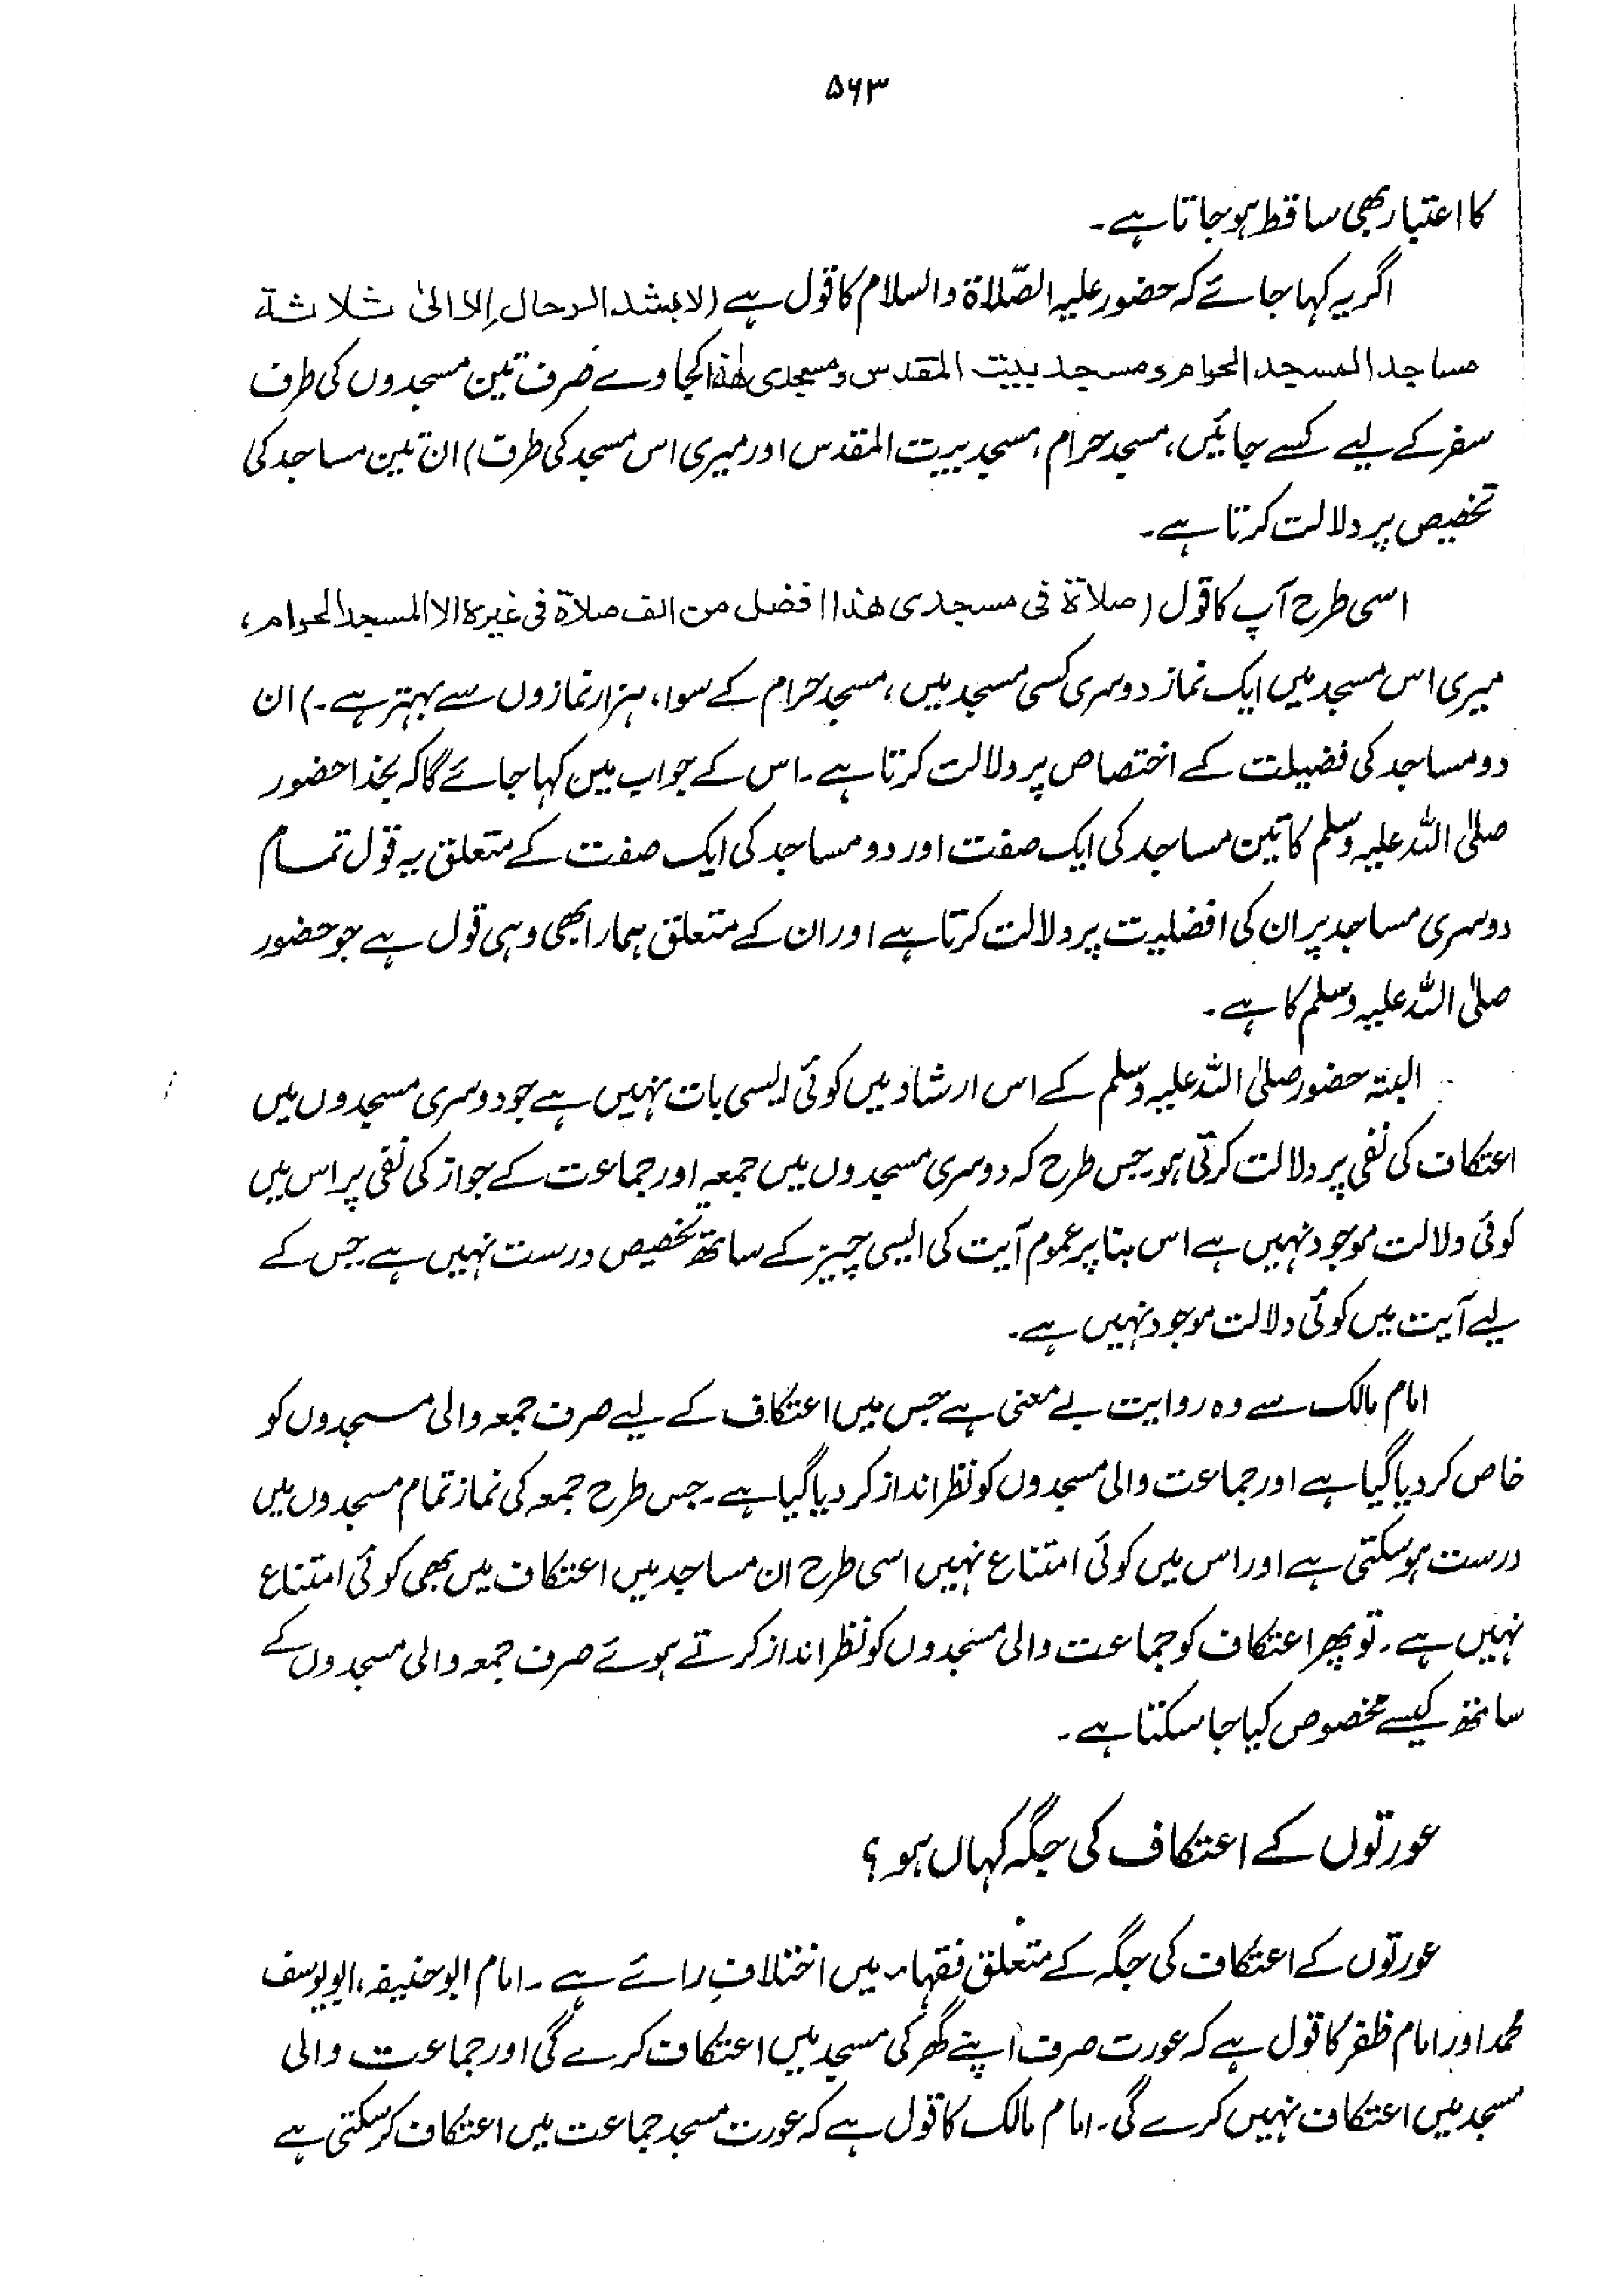 ۵۶۳
کا اعتبار بھی ساقط ہو جاتا ہے۔
اگر یہ کہا جائے کہ حضور علیہ الصّلاۃ والسلام کا قول ہے (لا تشد الرحال إلا الیٰ ثلاثة
مساجد المسجد الحرام و مسجد بیت المقدس و مسجدی ھٰذا کجاوے صرف تین مسجدوں کی طرف
سفر کے لیے کسے جائیں، مسجد حرام، مسجد بیت المقدس اور میری اس مسجد کی طرف) ان تین مساجد کی
تخصیص پر دلالت کرتا ہے۔
اسی طرح آپ کا قول (صلاۃ فی مسجدی ھذا افضل من الف صلاۃ فی غیرہ الا المسجد الحرام،
میری اس مسجد میں ایک نماز دوسری کسی مسجد میں، مسجد حرام کے سوا، ہزار نمازوں سے بہتر ہے۔) ان
دو مساجد کی فضیلت کے اختصاص پر دلالت کرتا ہے۔ اس کے جواب میں کہا جائے گا کہ بخدا حضور
صلی اللہ علیہ وسلم کا تین مساجد کی ایک صفت اور دو مساجد کی ایک صفت کے متعلق یہ قول تمام
دوسری مساجد پر ان کی افضلیت پر دلالت کرتا ہے اور ان کے متعلق ہمارا بھی وہی قول ہے جو حضور
صلی اللہ علیہ وسلم کا ہے۔
البتہ حضور صلی اللہ علیہ وسلم کے اس ارشاد میں کوئی ایسی بات نہیں ہے جو دوسری مسجدوں میں
اعتکاف کی نفی پر دلالت کرتی ہو۔ جس طرح کہ دوسری مسجدوں میں جمعہ اور جماعت کے جواز کی نفی پر اس میں
کوئی دلالت موجود نہیں ہے اس بنا پر عموم آیت کی ایسی چیز کے ساتھ تخصیص درست نہیں ہے جس کے
لیے آیت میں کوئی دلالت موجود نہیں ہے۔
امام مالک سے وہ روایت بے معنی ہے جس میں اعتکاف کے لیے صرف جمعہ والی مسجدوں کو
خاص کر دیا گیا ہے اور جماعت والی مسجدوں کو نظر انداز کر دیا گیا ہے۔ جس طرح جمعہ کی نماز تمام مسجدوں میں
درست ہو سکتی ہے اور اس میں کوئی امتناع نہیں اسی طرح ان مساجد میں اعتکاف میں بھی کوئی امتناع
نہیں ہے۔ تو پھر اعتکاف کو جماعت والی مسجدوں کو نظر انداز کرتے ہوئے صرف جمعہ والی مسجدوں کے
ساتھ کیسے مخصوص کیا جا سکتا ہے۔
عورتوں کے اعتکاف کی جگہ کہاں ہو؟
عورتوں کے اعتکاف کی جگہ کے متعلق فقہاء میں اختلافِ رائے ہے۔ امام ابو حنیفہ، ابو یوسف
محمد اور امام ظفر کا قول ہے کہ عورت صرف اپنے گھر کی مسجد میں اعتکاف کرے گی اور جماعت والی
مسجد میں اعتکاف نہیں کرے گی۔ امام مالک کا قول ہے کہ عورت مسجد جماعت میں اعتکاف کر سکتی ہے